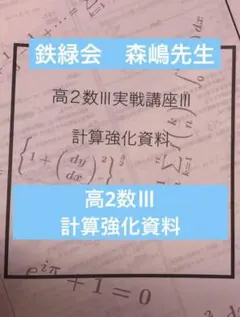 鉄緑会 森嶋先生
高2数Ⅲ実戦講座Ⅲ
計算強化資料
{1+(dy/dx)²}
高2数Ⅲ
計算強化資料
e^{iπ}+1=0